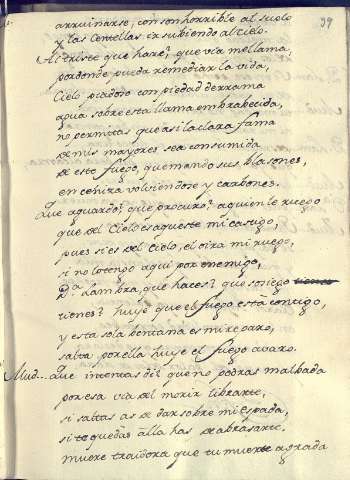 39
arruinarse, con son horrible al suelo
y las centellas ir subiendo al cielo.
Ai triste que haré? que via me llama,
por donde pueda remediar la vida,
Cielo piadoso con piedad derrama
agua sobre esta llama embrabecida,
no permitas que asi la clara fama
de mis mayores sea consumida
de este fuego, quemando sus blasones,
en ceniza volviendose y carbones.
Que aguardo? que procuro? a quien le ruego
que del Cielo es aqueste mi castigo,
pues si es del Cielo, el oira mi ruego,
si no lo tengo aqui por enemigo,
Dª Lambra, que haces? que sosiego
tienes? huye que el fuego está contigo,
y esta sola bentana es mi reparo,
salta por ella huye el fuego avaro.
Mud... Que intentas di? que no podras malbada
por esa via del morir librarte,
si saltas as de dar sobre mi espada,
si te quedas alla has de abrasarte.
muere traidora que tu muerte agrada